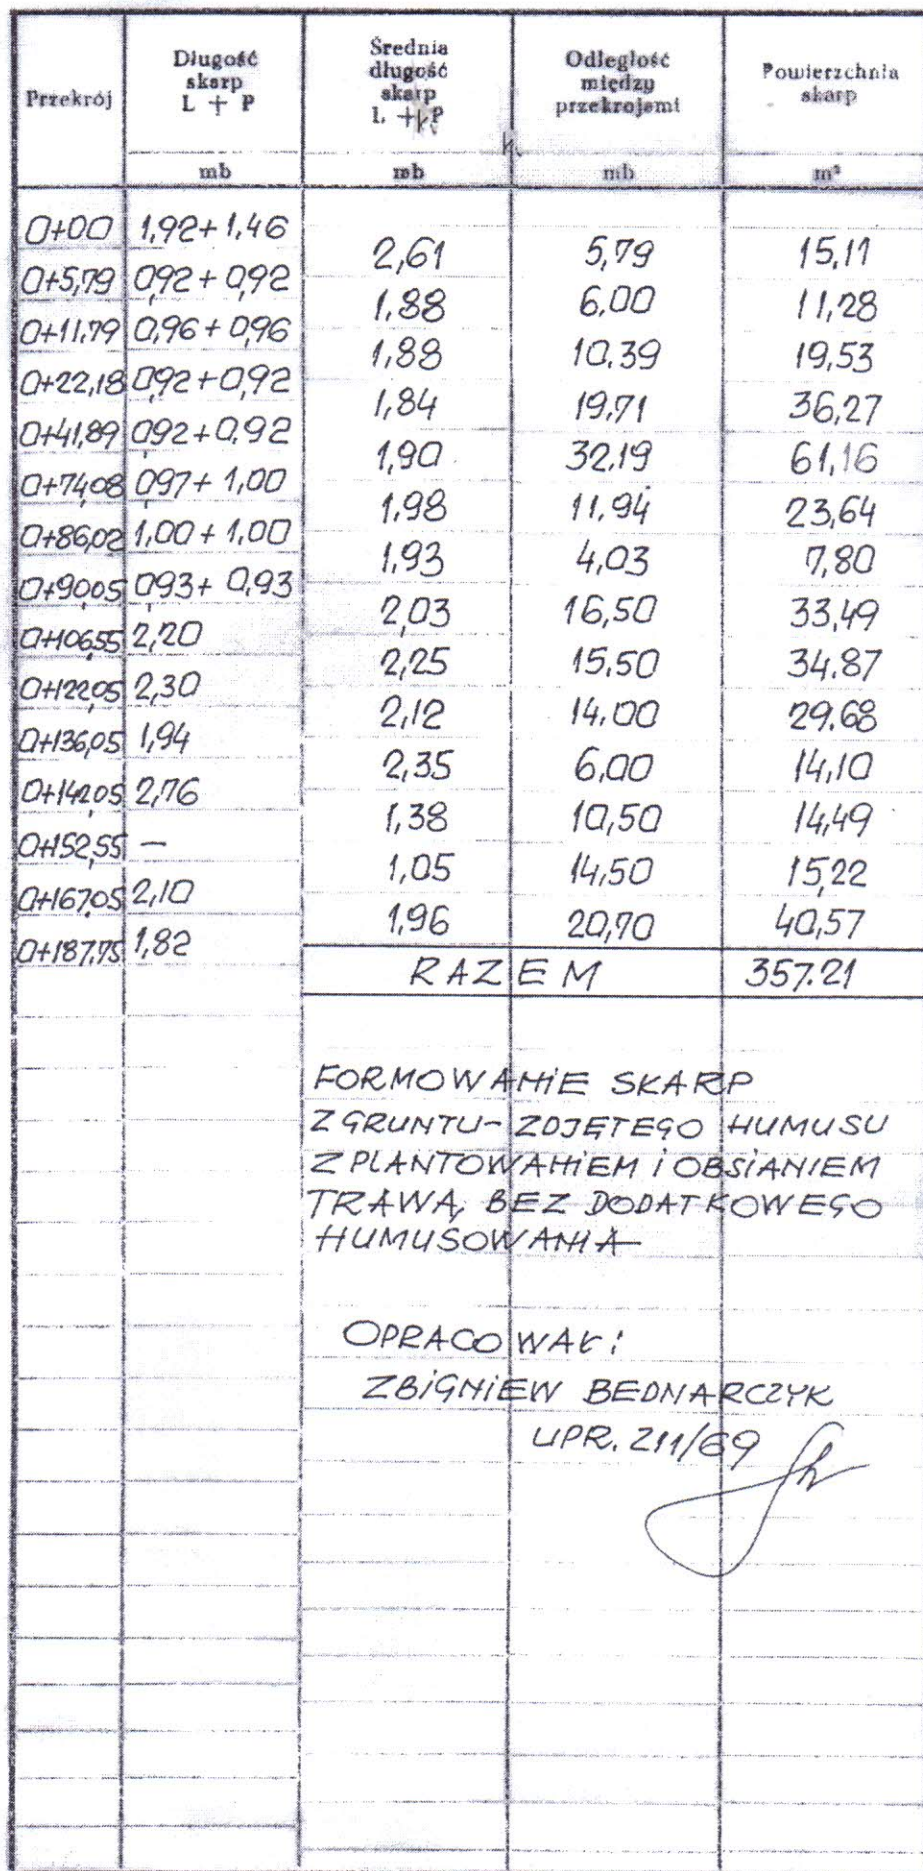 Przekrój | Długość skarp L + P | Średnia długość skarp L + P | Odległość między przekrojami | Powierzchnia skarp
mb | mb | mb | m²
0+00 | 1,92+1,46
2,61 | 5,79 | 15,11
0+5,79 | 0,92+0,92
1,88 | 6,00 | 11,28
0+11,79 | 0,96+0,96
1,88 | 10,39 | 19,53
0+22,18 | 0,92+0,92
1,84 | 19,71 | 36,27
0+41,89 | 0,92+0,92
1,90 | 32,19 | 61,16
0+74,08 | 0,97+1,00
1,98 | 11,94 | 23,64
0+86,02 | 1,00+1,00
1,93 | 4,03 | 7,80
0+90,05 | 0,93+0,93
2,03 | 16,50 | 33,49
0+106,55 | 2,20
2,25 | 15,50 | 34,87
0+122,05 | 2,30
2,12 | 14,00 | 29,68
0+136,05 | 1,94
2,35 | 6,00 | 14,10
0+142,05 | 2,76
1,38 | 10,50 | 14,49
0+152,55 | —
1,05 | 14,50 | 15,22
0+167,05 | 2,10
1,96 | 20,70 | 40,57
0+187,75 | 1,82
RAZEM | 357.21
FORMOWANIE SKARP
Z GRUNTU - ZDJĘTEGO HUMUSU
Z PLANTOWANIEM i OBSIANIEM
TRAWĄ, BEZ DODATKOWEGO
HUMUSOWANIA
OPRACOWAŁ:
ZBIGNIEW BEDNARCZYK
UPR. 211/69